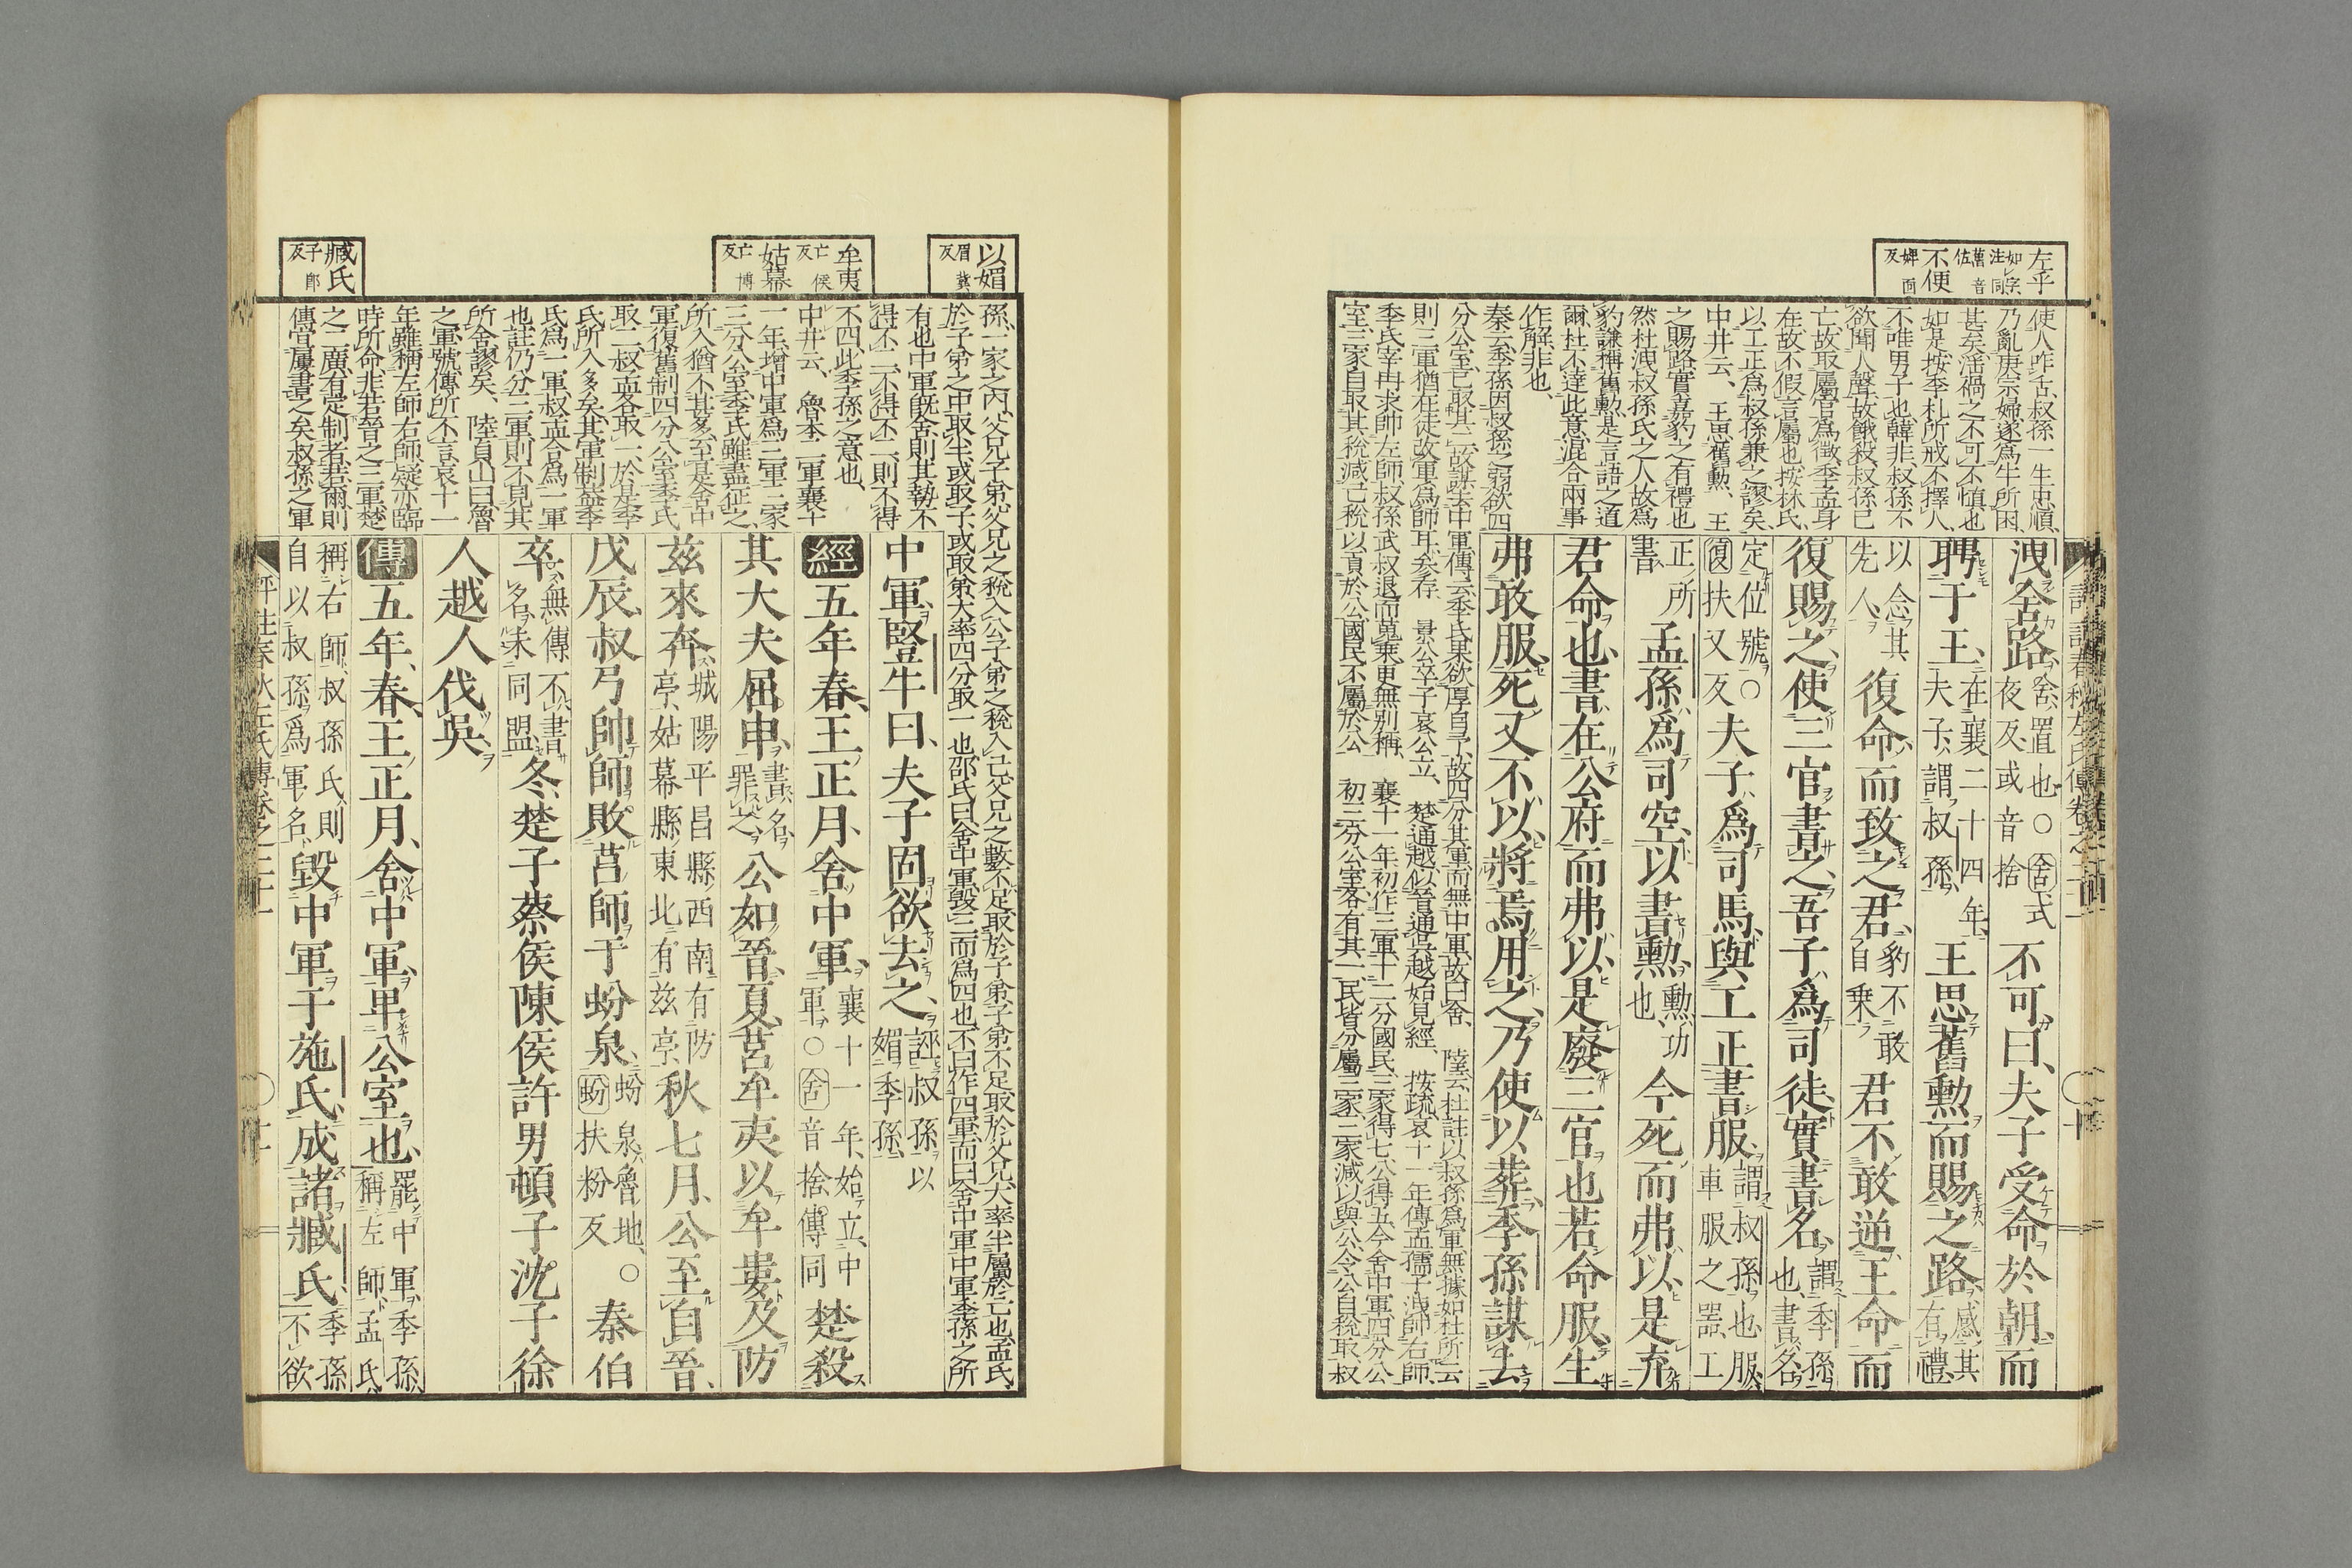 左乎
不便 婢面反
使人咋舌叔孫一生忠順
乃亂庚宗婦遂為牛所困
甚矣淫禍之不可不慎也
如是按季札所戒不擇人
不唯男子也韓非叔孫不
欲聞人聲故餓殺叔孫已
亡故取屬官為徵季孟身
在故不假言屬也按林氏
以工正為叔孫兼之謬矣
中井云、王思舊勳、王
之賜路實嘉豹之有禮也
然杜洩叔孫氏之人故為
豹謙稱舊勳是言語之道
爾杜不達此意混合兩事
作解非也、
秦云季孫因叔孫之弱欲四
洩舍路舍置也○舍式夜反或音捨不可曰夫子受命於朝而
聘于王在襄二十四年夫子謂叔孫王思舊勳而賜之路感其有禮
以念其先人復命而致之君豹不敢自乘君不敢逆王命而
復賜之使三官書之吾子爲司徒實書名謂季孫也書名
定位號○復扶又反夫子爲司馬與工正書服謂叔孫也服車服之器工
正所書孟孫爲司空以書勳勳功也今死而弗以是充
君命也書在公府而弗以是廢三官也若命服生
弗敢服死又不以將焉用之乃使以葬季孫謀去
分公室已取其二故謀去中軍傳云季氏果欲厚自予故四分其軍而無中軍故曰舍、陸云杜註以叔孫爲軍無據如杜所云
則三軍猶在徒改軍爲師耳叅存 景公卒子哀公立、楚通越以晉通吳越始見經、按疏哀十一年傳孟孺子洩帥右師
季氏宰冉求帥左師叔孫武叔退而蒐乘更無別稱、襄十一年初作三軍十二分國民三家得七公得五今舍中軍四分公
室三家自取其稅減已稅以貢於公國民不屬於公 初三分公室各有其一民皆分屬三家三家減以與公令公自稅取叔
以媚 眉冀反
牟夷 亡侯反
姑幕 亡博反
臧氏 子郎反
孫一家之內父兄子弟父兄之稅入公子弟之稅入己父兄之數不足取於子弟子弟不足取於父兄大率半屬於己也孟氏
於子弟之中取半或取子或取弟大率四分取一也邵氏曰舍中軍毀三而爲四也不曰作四軍而曰舍中軍中軍季孫之所
有也中軍既舍則其勢不
得不二不得不二則不得
不四此季孫之意也
中井云、魯本二軍襄十
一年增中軍爲三軍三家
三分公室季氏雖盡征之
所入猶不甚多至是舍中
軍復舊制四分公室季氏
取二叔孟各取一於是季
氏所入多矣其軍制蓋季
氏爲一軍叔孟合爲一軍
也註仍分三軍則不見其
所舍謬矣、陸貞山曰魯
之軍號傳所不言哀十一
年雖稱左師右師疑亦臨
時所命非若晉之三軍楚
之二廣有定制者若爾則
傳宜屢書之矣叔孫之軍
中軍豎牛曰夫子固欲去之誣叔孫以媚季孫
經五年春王正月舍中軍襄十一年始立中軍○舍音捨傳同楚殺
其大夫屈申書名罪之公如晉夏莒牟夷以牟婁及防
茲來奔城陽平昌縣西南有防亭姑幕縣東北有茲亭秋七月公至自晉
戊辰叔弓帥師敗莒師于蚡泉蚡泉魯地○蚡扶粉反秦伯
卒無傳不書名未同盟冬楚子蔡侯陳侯許男頓子沈子徐
人越人伐吳
傳五年春王正月舍中軍卑公室也罷中軍季孫稱左師孟氏
稱右師叔孫氏則自以叔孫爲軍名毀中軍于施氏成諸臧氏季孫不欲